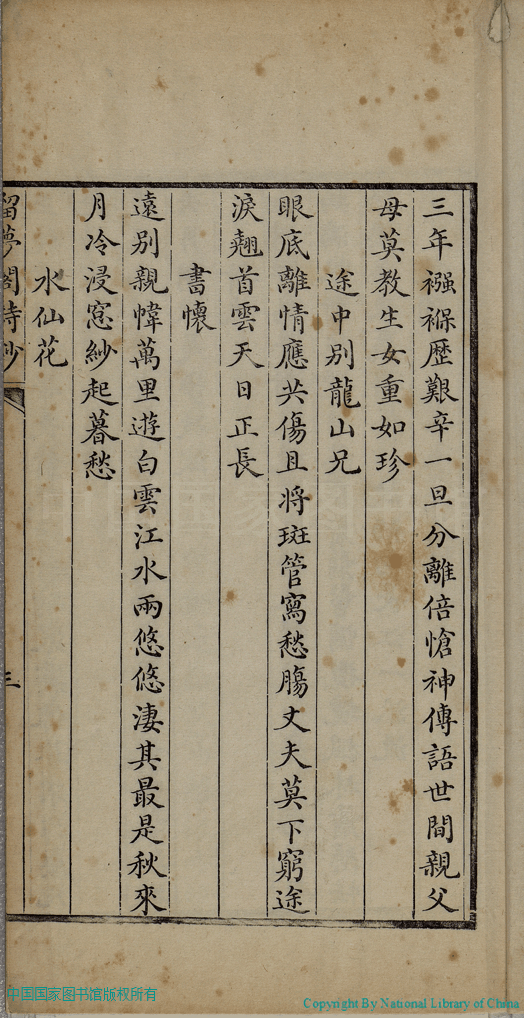 三年襁褓歷艱辛一旦分離倍愴神傳語世間親父
母莫教生女重如珍
途中別龍山兄
眼底離情應共傷且將斑管寫愁腸丈夫莫下窮途
淚翹首雲天日正長
書懷
遠別親幃萬里遊白雲江水兩悠悠淒其最是秋來
月冷浸窓紗起暮愁
水仙花
留夢閣詩鈔
三
中国国家图书馆版权所有
Copyright By National Library of China